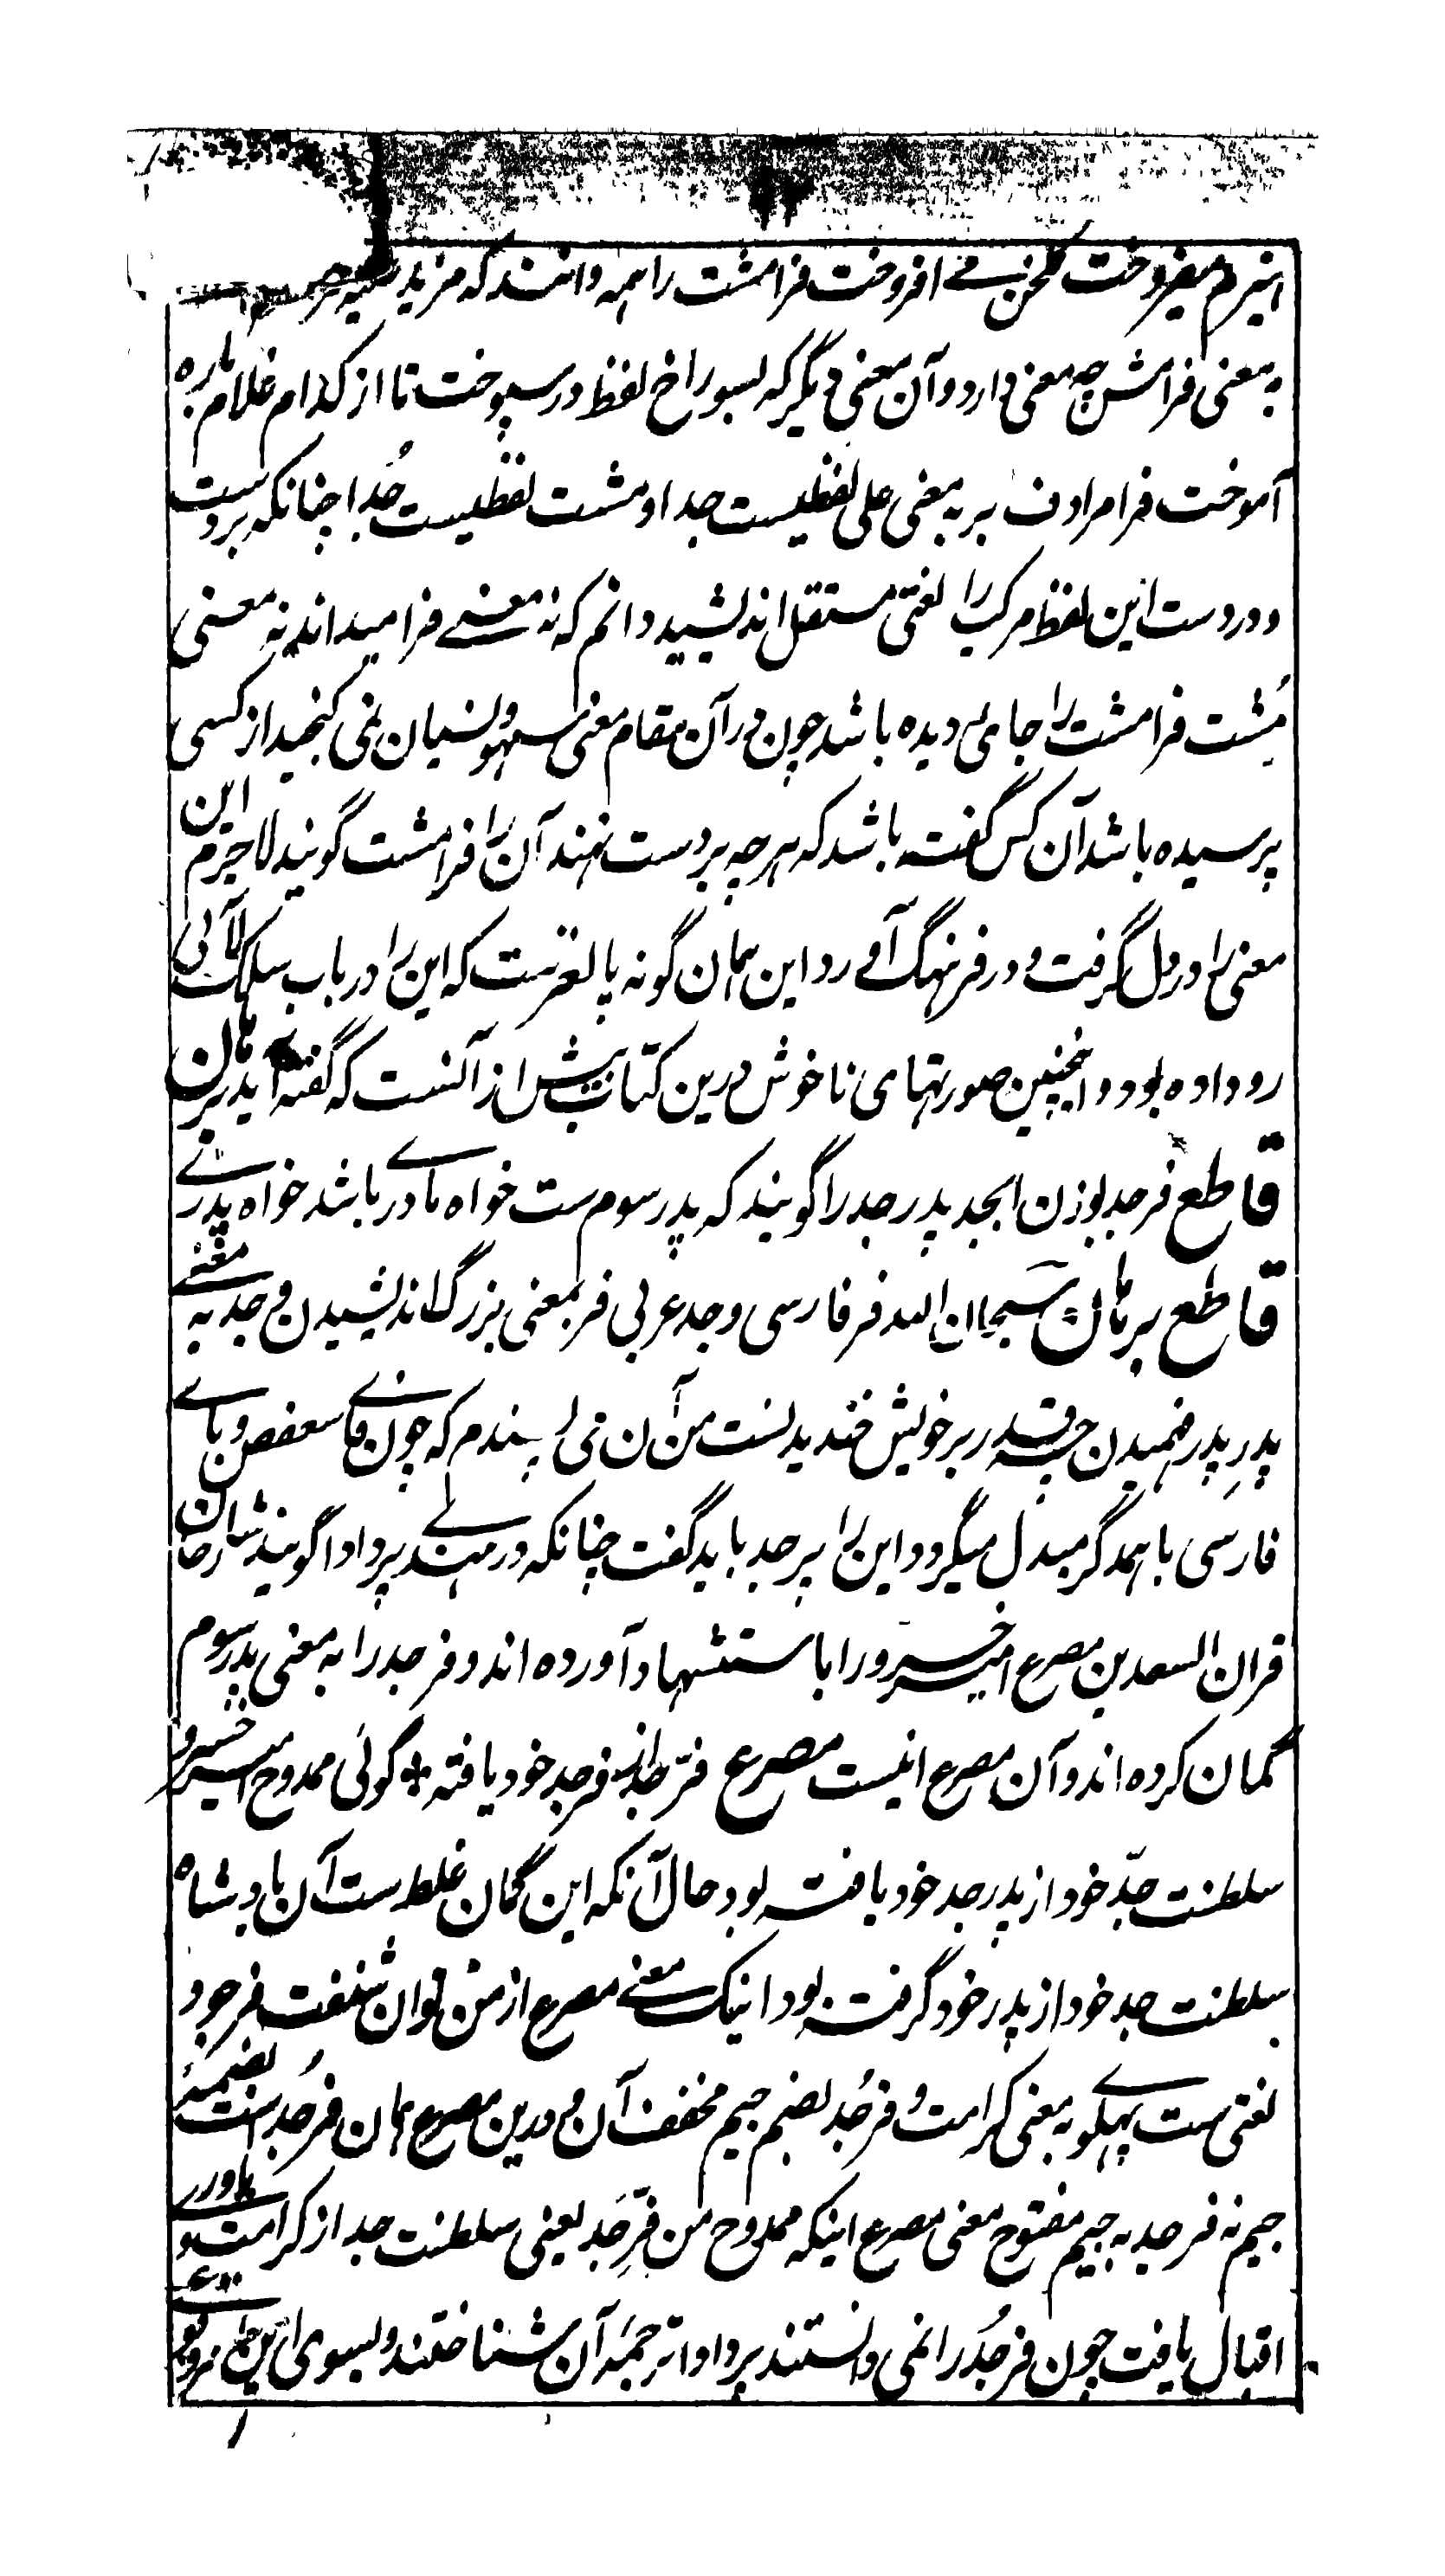 افروخت فرامشت را همه دانند که مزید علیه
به معنی فرامش چه معنی دارد و آن معنی دیگر که بسوراخ لفظ در سپوخت تا از کدام غلام باره
آموخت فرا مرادف بر به معنی علی لفظیست جدا و مشت لفظیست جُدا چنانکه بر دست
و در دست این لفظ مرکب را لغتی مستقل اندیشید دانم که نه معنے فرا میداند نه معنی
مُشت فرامشت را جای دیده باشد چون در آن مقام معنی سهو و نسیان نمی گنجید از کسی
پرسیده باشد آن کس گفته باشد که هر چه بر دست نهند آن را فرامشت گویند لاجرم این
معنی را در دل گرفت و در فرهنگ آورد و این همان گونه پا لغزست که این را در باب سلک لآلی
رو داده بود و اینچنین صورتهای ناخوش درین کتاب بیش از آنست که گفته آید برهان
قاطع فرجد بوزن ابجد پدر جد را گویند که پدر سوم ست خواه مادرے باشد خواه پدرے
قاطع برهان سبحان الله فر فارسی و جد عربی فر بمعنی بزرگ اندیشیدن و جد به معنے
پدرِ پدر فهمیدن چه قدر بر خویش خندیدنست من آن می پسندم که چون فاے سعفص و باے
فارسی با همدگر مبدل میگردد این را پر جد باید گفت چنانکه در هندی پردادا گویند شارحان
قران السعدین مصرع امیر خسرو را باستشهاد آورده اند و فرجد را به معنی پدر سوم
گمان کرده اند و آن مصرع اینست مصرع فرّ جد از فرجد خود یافته * گوئی ممدوح امیر خسرو
سلطنت جدّ خود از پدر جد خود یافته بود حال آنکه این گمان غلط ست آن بادشاه
سلطنت جد خود از پدر خود گرفته بود اینک معنے مصرع از من توان شنفت فرجود
لغتی ست پهلوے به معنی کرامت و فرجُد بضم جیم مخفف آن و درین مصرع همان فرجُد است بضمهٔ
جیم نه فرجد به جیم مفتوح معنی مصرع اینکه ممدوح من فرّ جَد یعنی سلطنت جد از کرامت و یاورے
اقبال یافت چون فرجُد را نمی دانستند پردادا ترجمهٔ آن شناختند و بسوی این